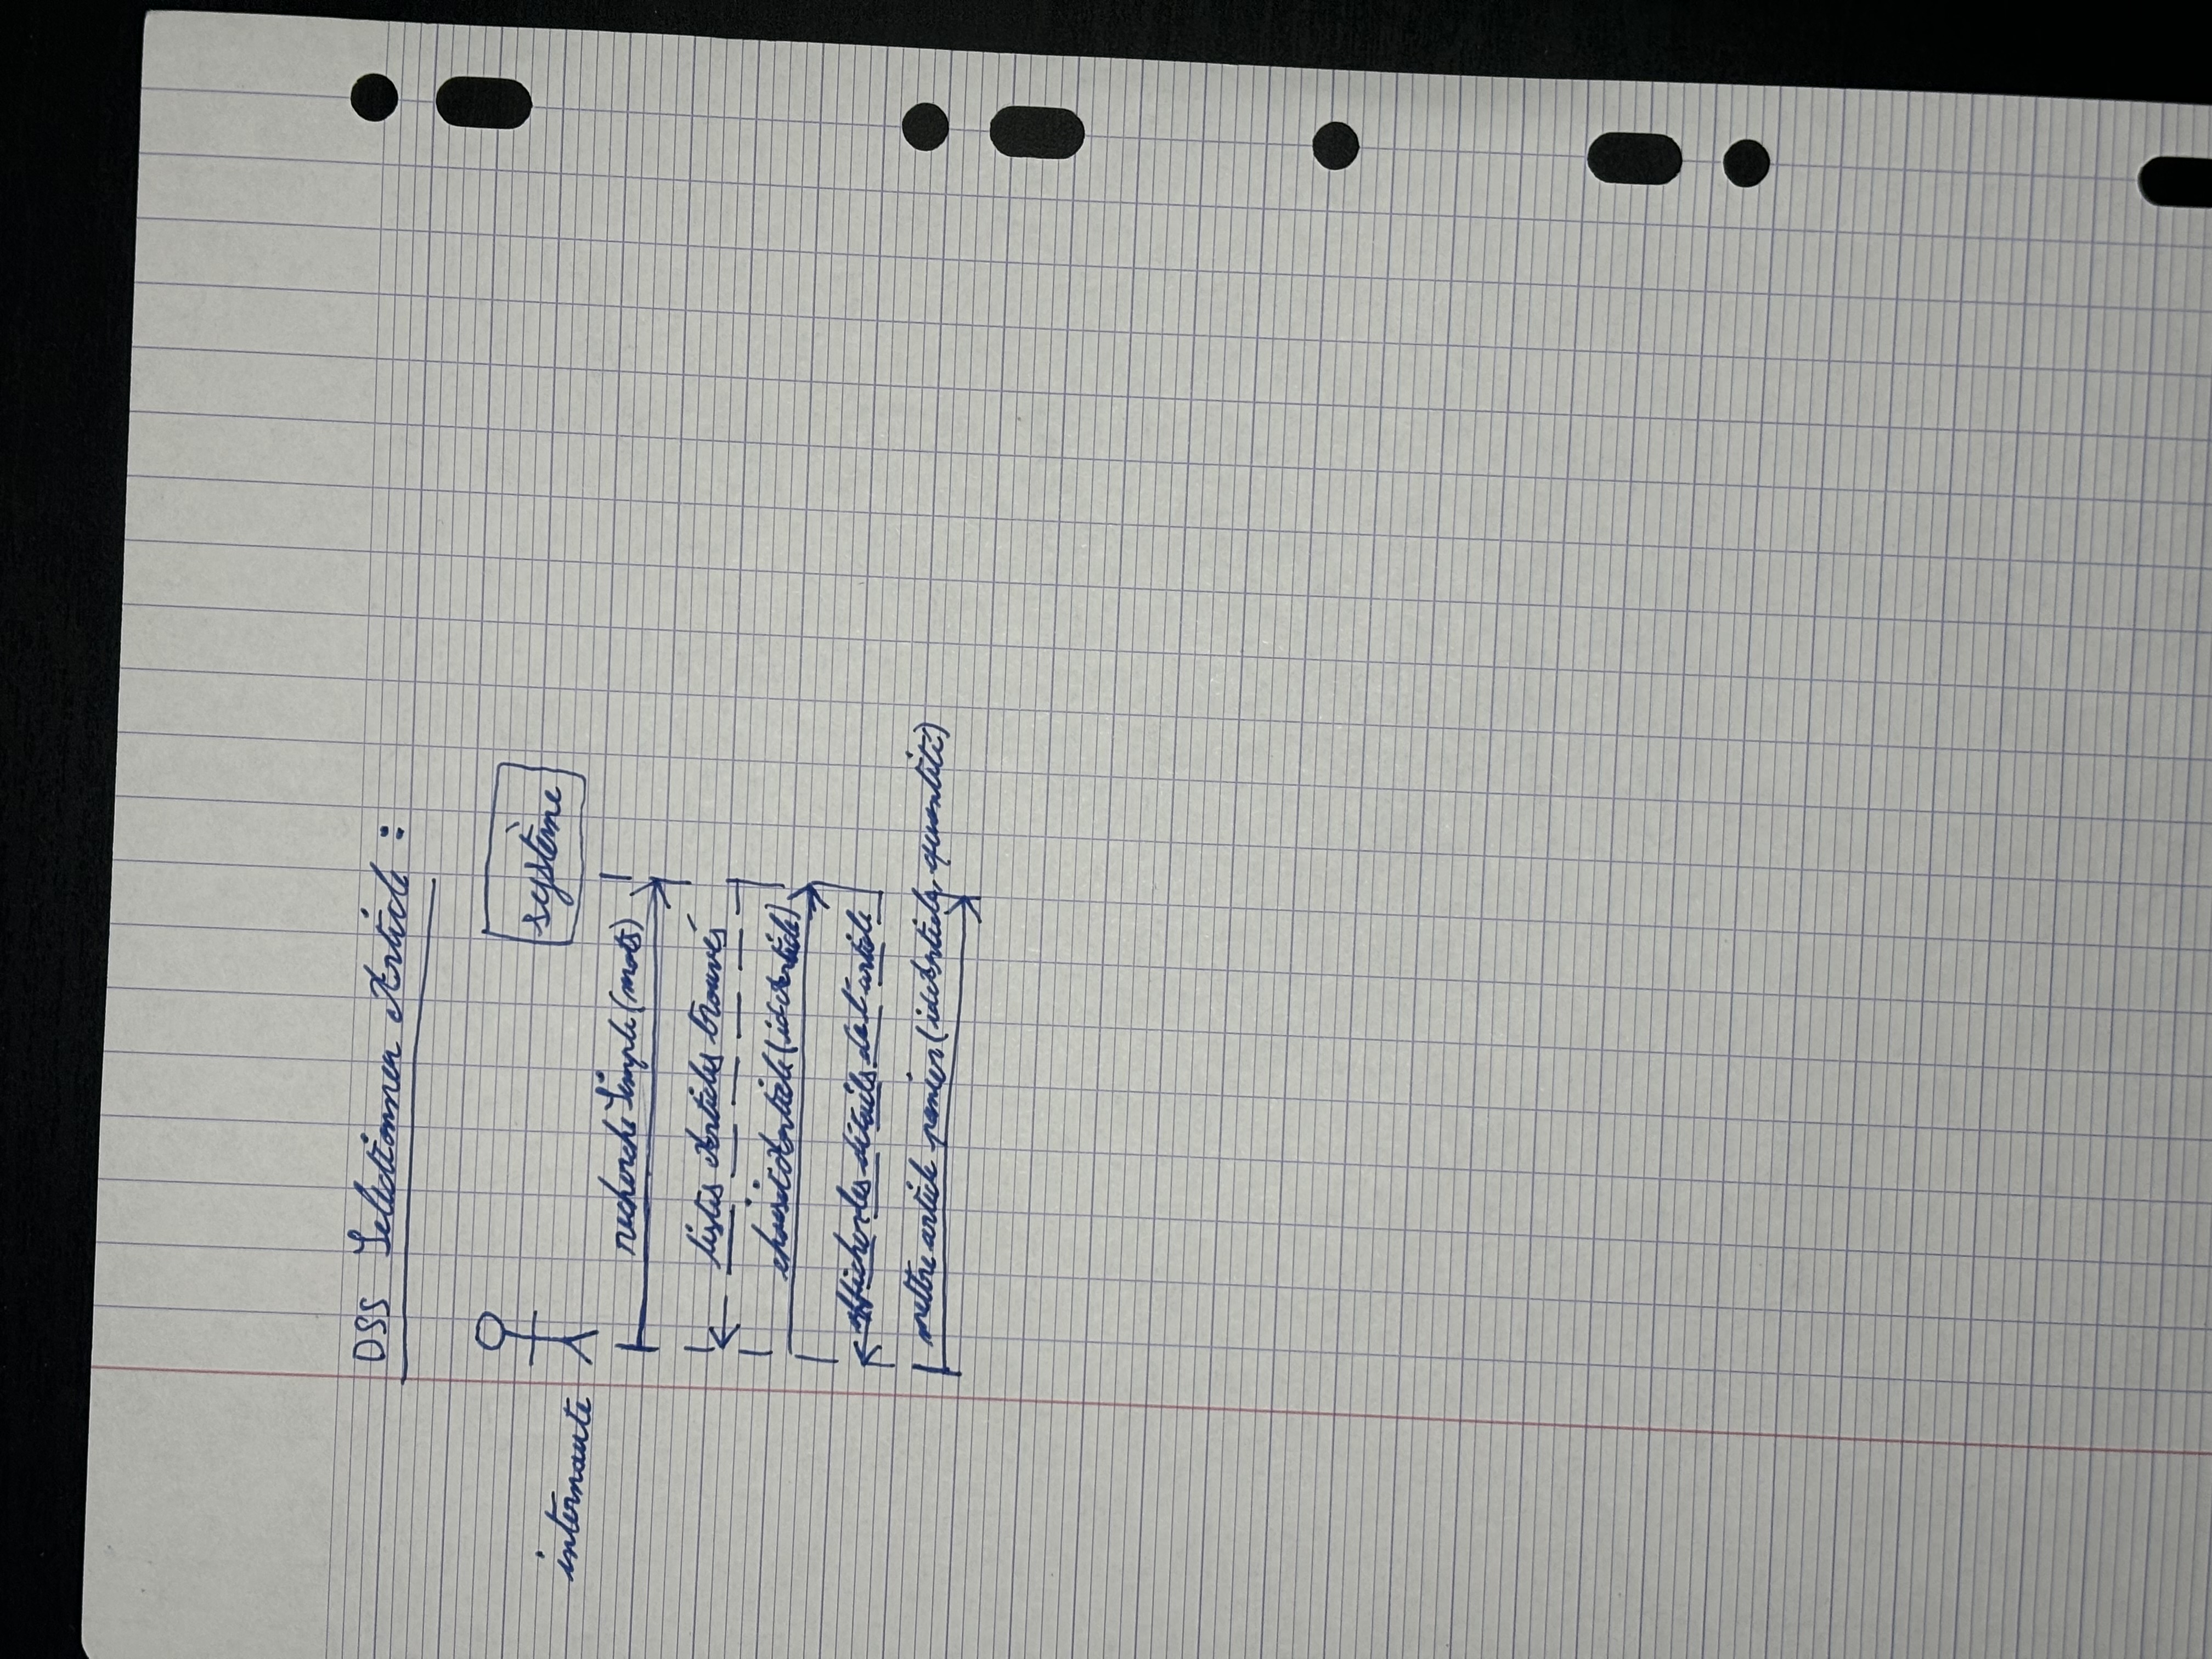 DSS Selectionner Article :
internaute
système
rechercheSimple(mots)
listes Articles trouvés
choisitArticle(idArticle)
afficher les détails de l'article
mettre article panier(idArticle, quantité)